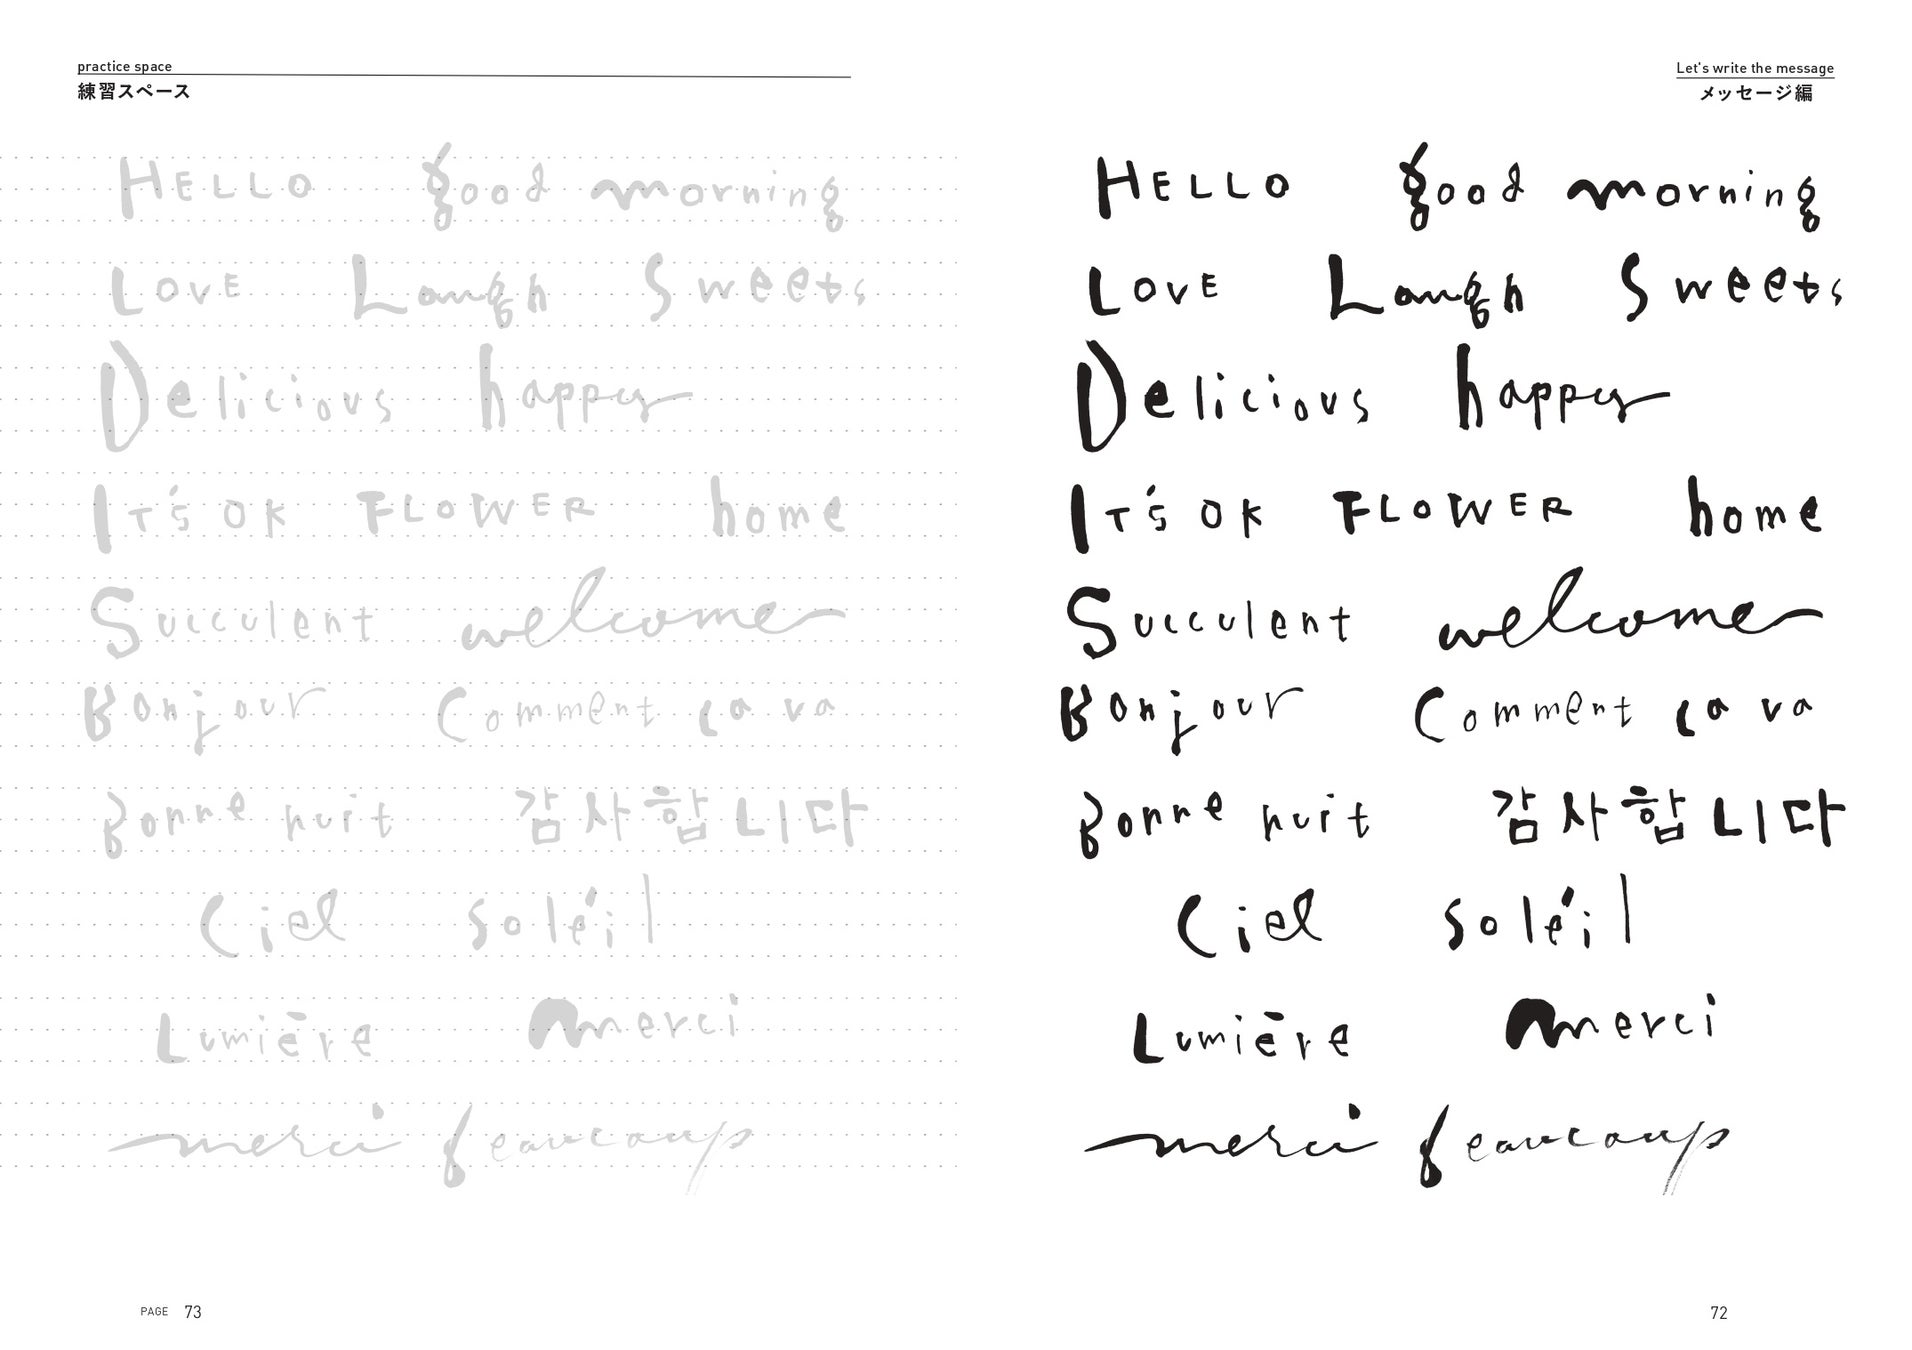 Let's write the message
メッセージ編
HELLO good morning
LOVE Laugh Sweets
Delicious happy
IT'S OK FLOWER home
Succulent welcome
Bonjour Comment ça va
Bonne nuit 감사합니다
Ciel soléil
Lumière merci
merci beaucoup
72
practice space
練習スペース
HELLO good morning
LOVE Laugh Sweets
Delicious happy
IT'S OK FLOWER home
Succulent welcome
Bonjour Comment ça va
Bonne nuit 감사합니다
Ciel soléil
Lumière merci
merci beaucoup
PAGE 73